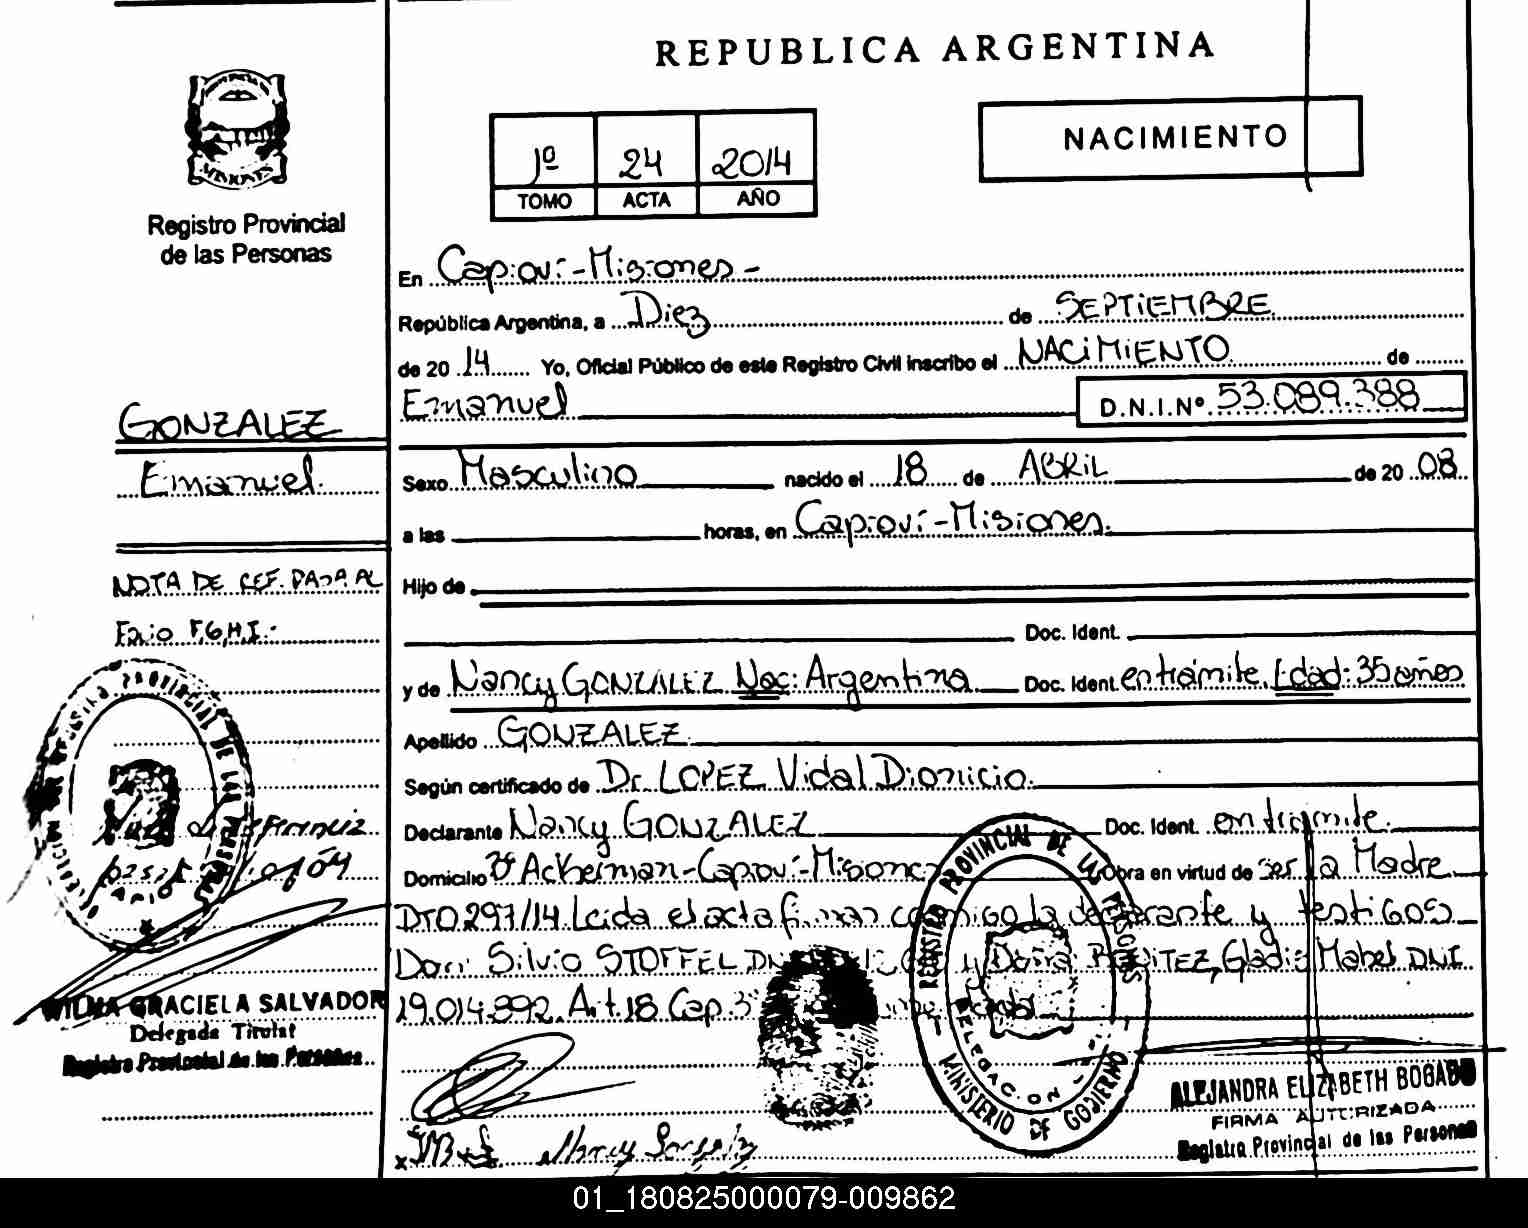 REPUBLICA ARGENTINA
MISIONES
Registro Provincial
de las Personas
1º 24 2014
TOMO ACTA AÑO
NACIMIENTO
En Capioví-Misiones-
República Argentina, a Diez de SEPTIEMBRE
de 20 14 Yo, Oficial Público de este Registro Civil inscribo el NACIMIENTO de
Emanuel D.N.I.Nº 53.089.388
GONZALEZ
Emanuel
Sexo Masculino nacido el 18 de ABRIL de 20 08
a las horas, en Capioví-Misiones.
NOTA DE REF. PASA AL
Folio F.G.H.I.-
Hijo de
Doc. Ident.
y de Nancy GONZALEZ Nac: Argentina Doc. Ident. entrámite. Edad: 35 años
Apellido GONZALEZ
Según certificado de Dr. LOPEZ Vidal Dionicio.
Declarante Nancy GONZALEZ Doc. Ident. en trámite.
Domicilio Bº Ackerman-Capioví-Misiones Obra en virtud de ser la Madre
DTO 297/14. Leida el acta firman conmigo la declarante y testigos
Don: Silvio STOFFEL DNI y Doña BENITEZ, Gladis Mabel DNI
19.014.992. Art.18 Cap.3
REGISTRO PROVINCIAL DE LAS PERSONAS
DELEGACION
MINISTERIO DE GOBIERNO
WILMA GRACIELA SALVADOR
Delegada Titular
Registro Provincial de las Personas
ALEJANDRA ELIZABETH BOGADO
FIRMA AUTORIZADA
Registro Provincial de las Personas
Nancy Gonzalez
01_180825000079-009862